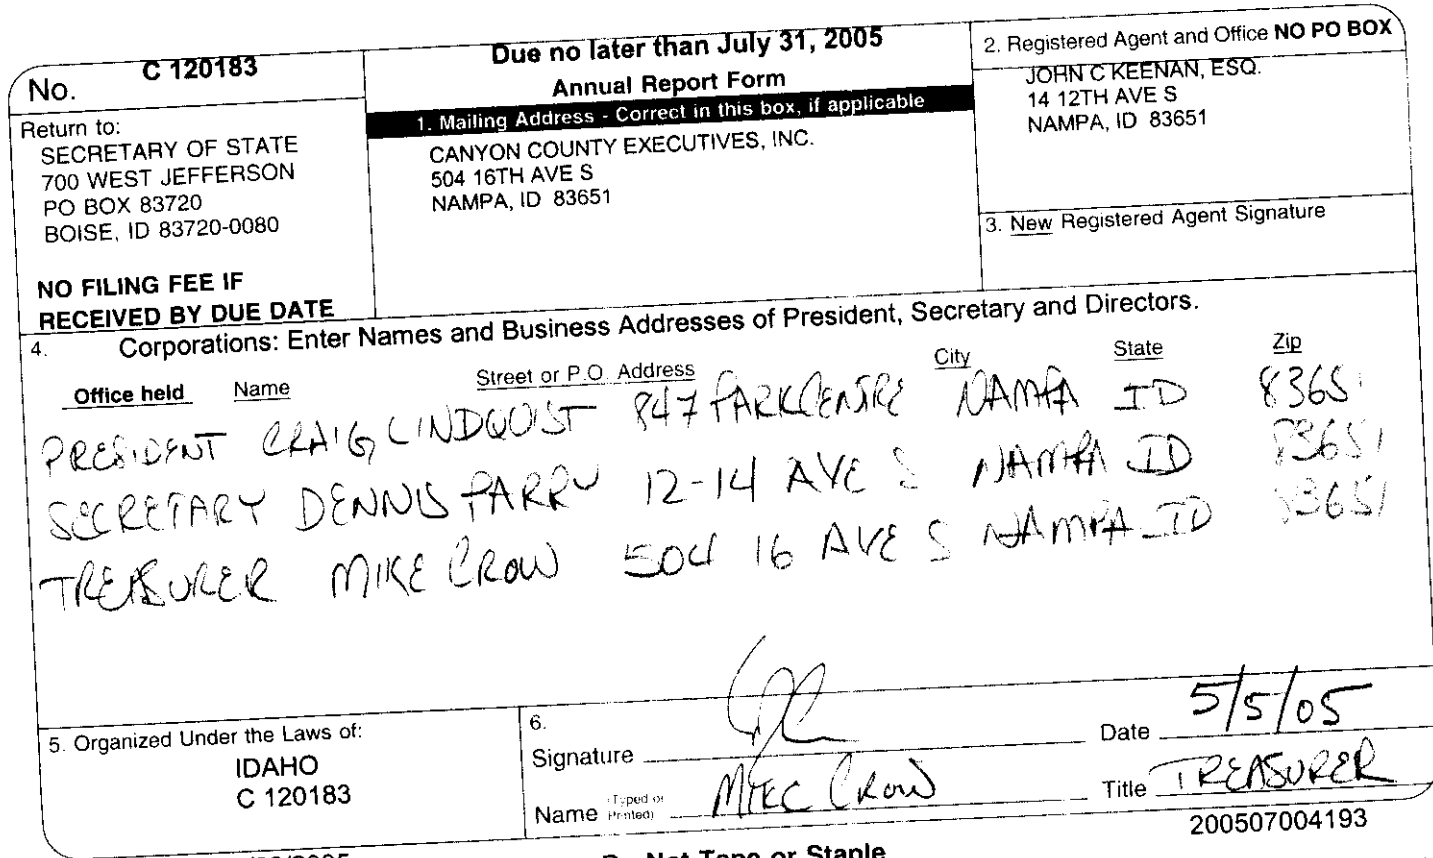 No. C 120183
Return to:
SECRETARY OF STATE
700 WEST JEFFERSON
PO BOX 83720
BOISE, ID 83720-0080
NO FILING FEE IF
RECEIVED BY DUE DATE
Due no later than July 31, 2005
Annual Report Form
1. Mailing Address - Correct in this box, if applicable
CANYON COUNTY EXECUTIVES, INC.
504 16TH AVE S
NAMPA, ID 83651
2. Registered Agent and Office NO PO BOX
JOHN C KEENAN, ESQ.
14 12TH AVE S
NAMPA, ID 83651
3. New Registered Agent Signature
4. Corporations: Enter Names and Business Addresses of President, Secretary and Directors.
Office held Name Street or P.O. Address City State Zip
PRESIDENT CRAIG LINDQUIST 847 PARKCENTRE NAMPA ID 83651
SECRETARY DENNIS PARRY 12-14 AVE S NAMPA ID 83651
TREASURER MIKE CROW 504 16 AVE S NAMPA ID 83651
5. Organized Under the Laws of:
IDAHO
C 120183
6.
Signature
Date 5/5/05
Name (Typed or Printed) MIKE CROW
Title TREASURER
200507004193
Do Not Tape or Staple